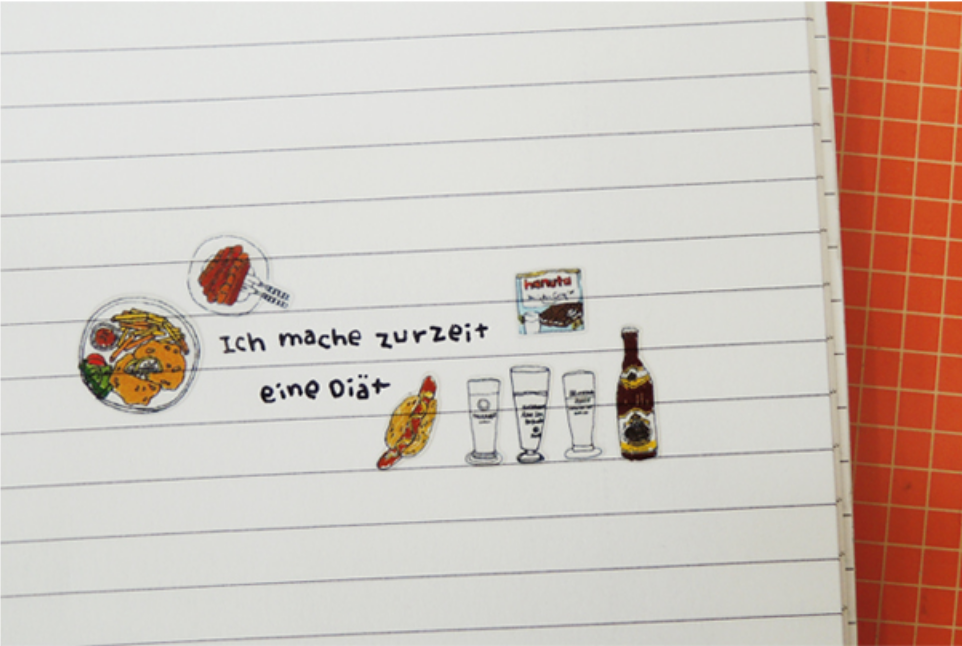 hanuta
Ich mache zurzeit
eine Diät